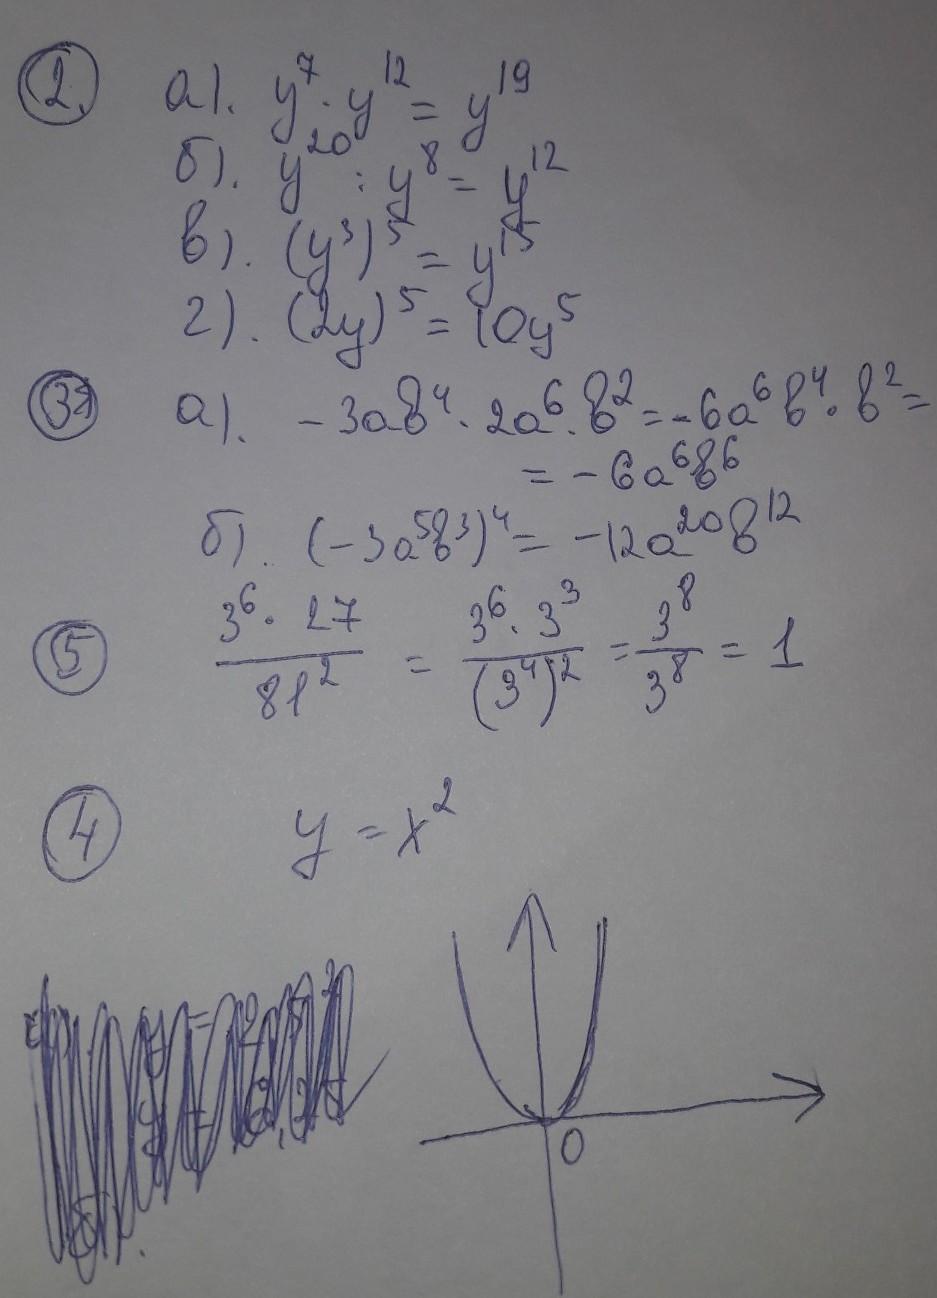 2. а). y⁷ · y¹² = y¹⁹
б). y²⁰ : y⁸ = y¹²
в). (y³)⁵ = y¹⁵
г). (2y)⁵ = 10y⁵
3 а). -3ab⁴ · 2a⁶ · b² = -6a⁶b⁴ · b² =
= -6a⁶b⁶
б). (-3a⁵b³)⁴ = -12a²⁰b¹²
5 3⁶ · 27 / 81² = 3⁶ · 3³ / (3⁴)² = 3⁸ / 3⁸ = 1
4 y = x²
0